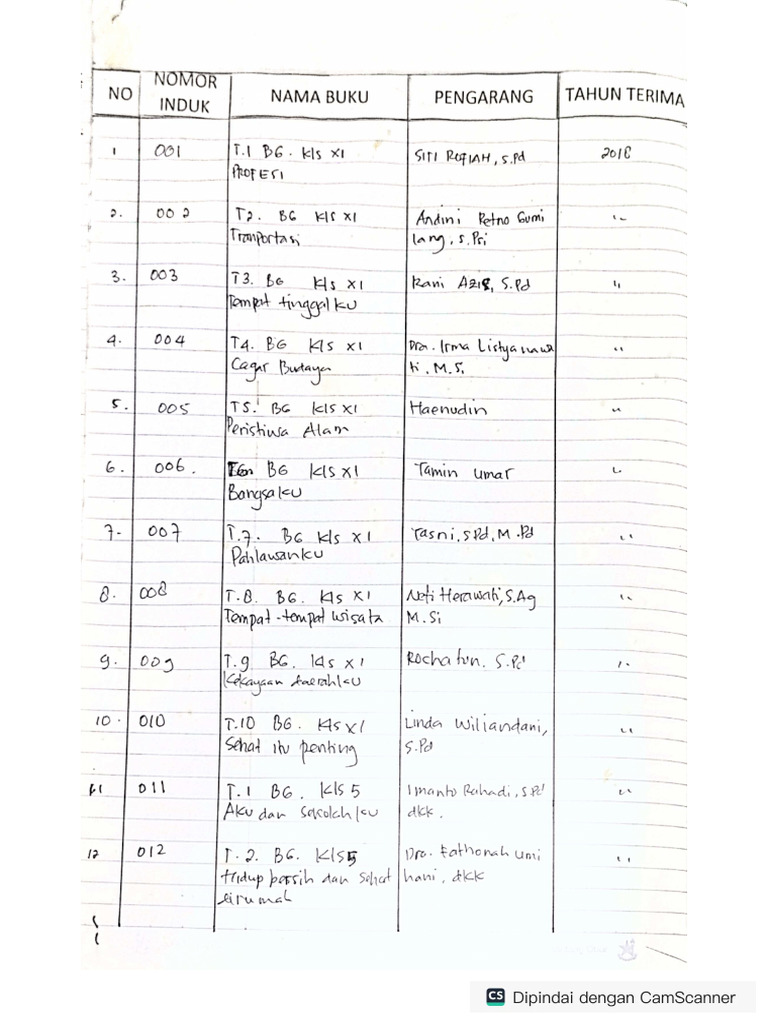 NO NOMOR INDUK NAMA BUKU PENGARANG TAHUN TERIMA
1 001 T.1 BG. Kls XI SITI ROFIAH, S.Pd 2018
PROFESI
2. 002 T2. BG Kls XI Andini Retno Gumi "
Tranportasi lang, S.Psi
3. 003 T3. BG Kls XI Rani Azis, S.Pd "
Tempat tinggalku
4. 004 T4. BG Kls XI Dra. Irma Listyanawa "
Cagar Budaya ti, M.Si
5. 005 T5. BG Kls XI Haenudin "
Peristiwa Alam
6. 006. BG Kls XI Tamin Umar "
Bangsaku
7. 007 T.7. BG Kls XI Tasni, S.Pd, M.Pd "
Pahlawanku
8. 008 T.8. BG. Kls XI Neti Herawati, S.Ag "
Tempat-tempat wisata M.Si
9. 009 T.9 BG. Kls XI Rochatun, S.Pd "
Kekayaan daerahku
10. 010 T.10 BG. Kls XI Linda Wiliandani, "
Sehat itu penting S.Pd
11 011 T.1 BG. Kls 5 Imanto Rahadi, S.Pd "
Aku dan sekolahku dkk.
12 012 T.2. BG. Kls 5 Dra. Fathonah Umi "
Hidup bersih dan sehat hani, dkk
dirumah
CS Dipindai dengan CamScanner